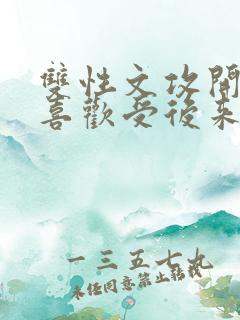 雙性文攻開
喜歡受後來
一三五七九
未经同意禁止转载